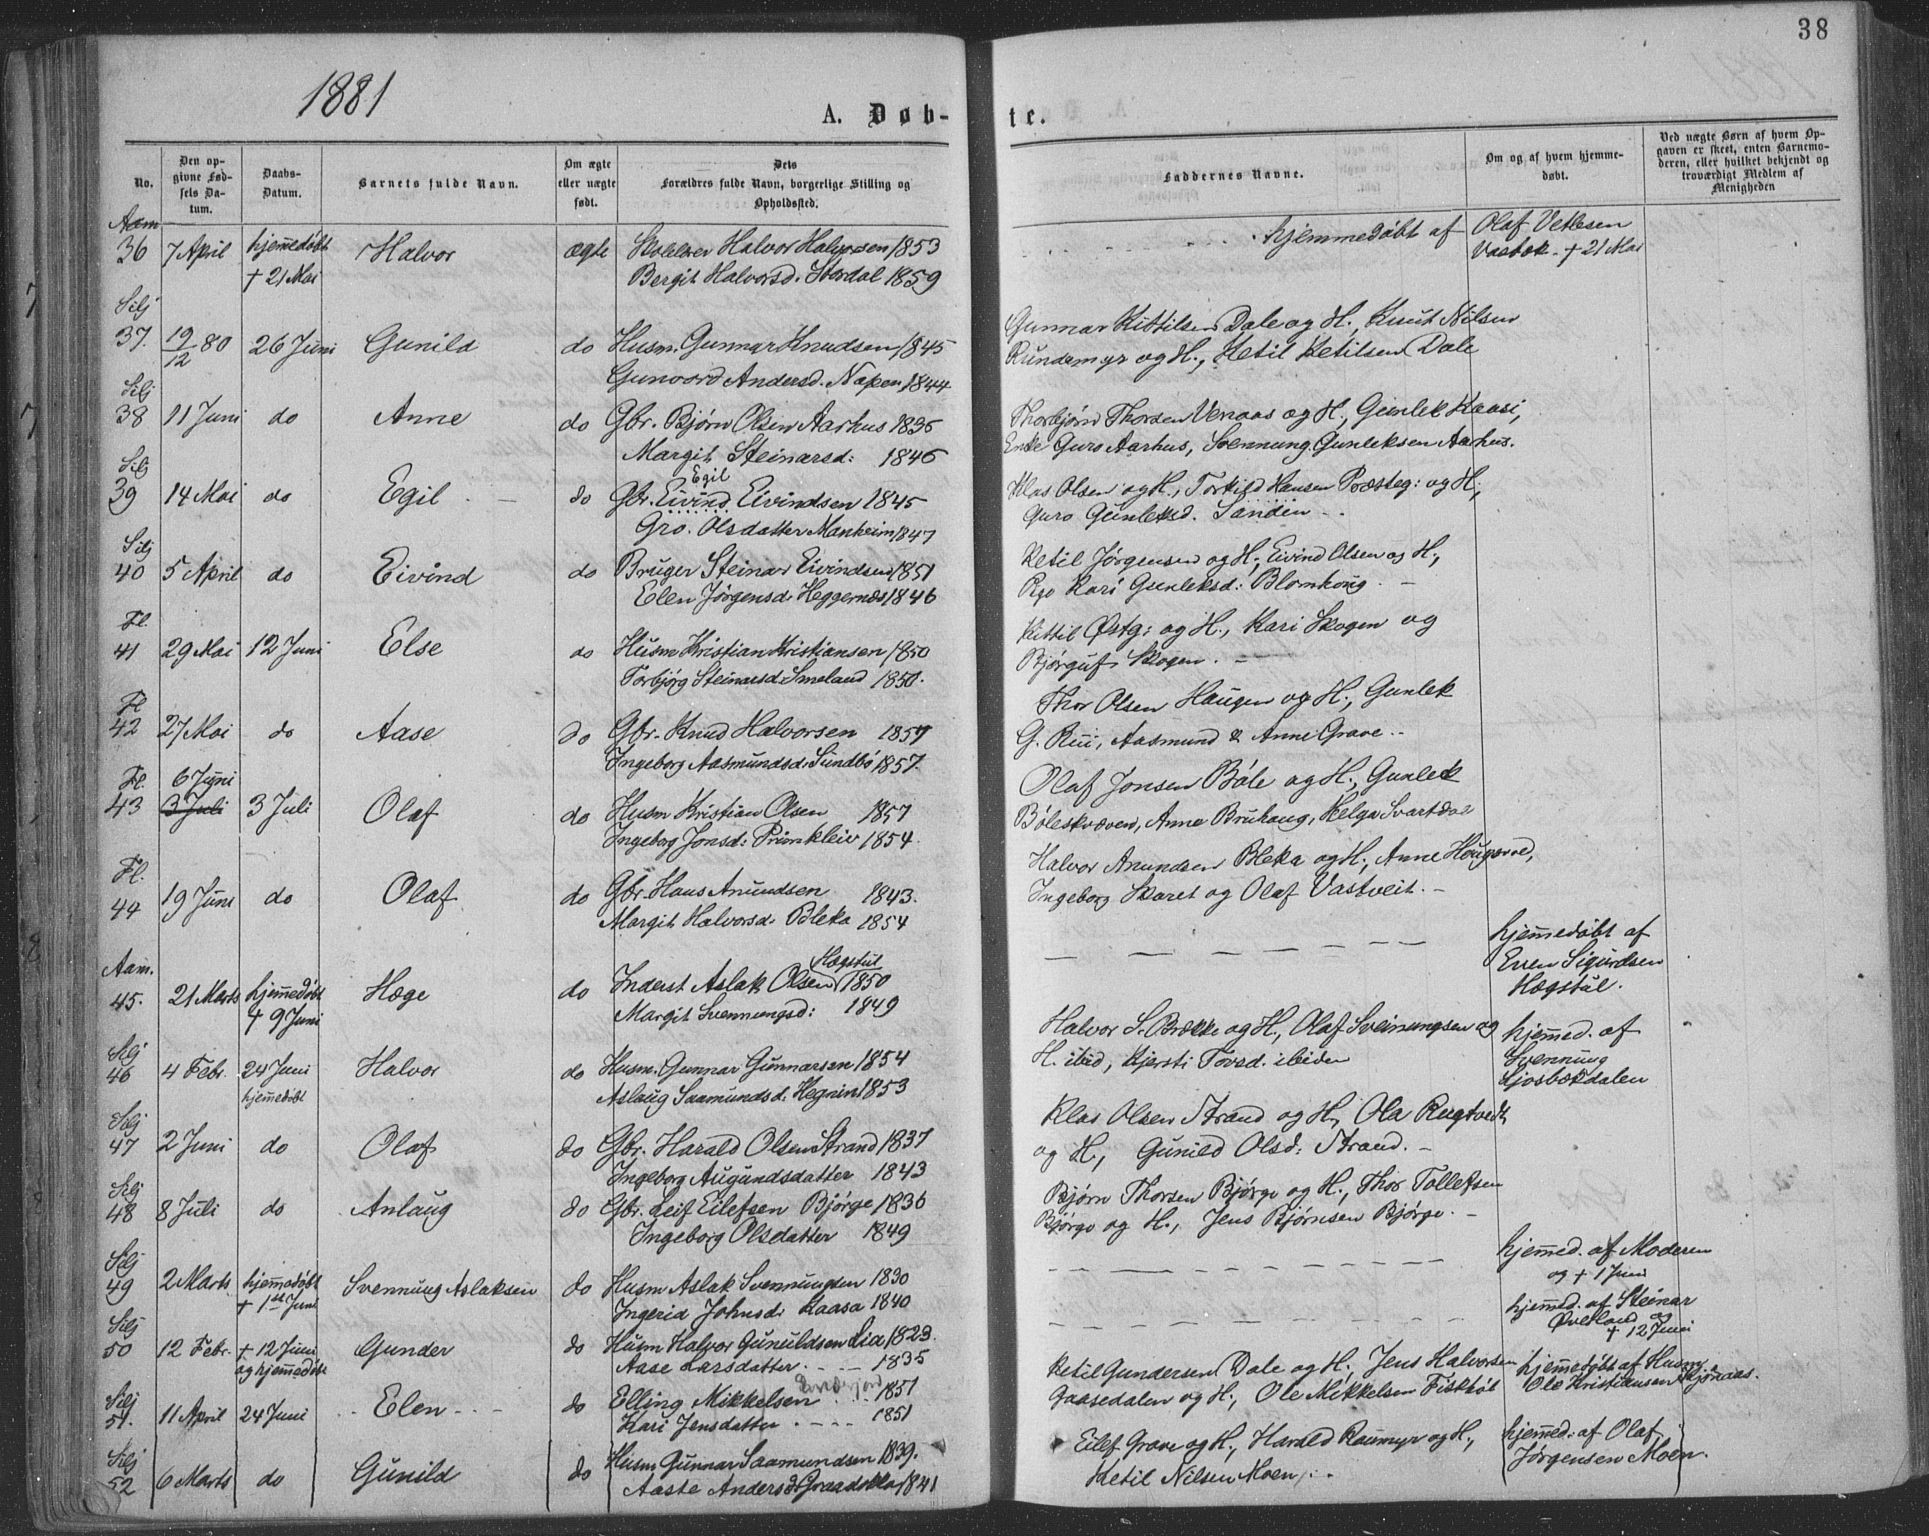 38
1881
A. Døb-
te.
No.
Den op-
givne Fød-
sels Da-
tum.
Daabs-
Datum.
Barnets fulde Navn.
Om ægte
eller uægte
født.
Dets
Forældres fulde Navn, borgerlige Stilling og
Opholdssted.
Faddernes Navne.
Om og af hvem hjemme-
døbt.
Ved uægte Børn af hvem Op-
gaven er skeet, enten Barnemo-
deren, eller hvilket bekjendt og
troværdigt Medlem af
Menigheden
Aam
36 7 April hjemmedøbt Halvor ægte Halvor Halvorsen 1853 hjemmedøbt af Olaf Vetlesen
+ 21 Mai Bergit Halvorsd. 1859 + 21 Mai
Silj
37. 19/12 80 26 Juni Gunild do Husm. Gunnar Knudsen 1845 Gunnar Kittilsen Dale og H., Knut Nilsen
Gunvord Andersd. Næpen 1844 Rundemyr og H., Ketil Ketilsen Dale
Silj
38 11 Juni do Anne do Gbr. Bjørn Olsen Aarhus 1836 Thorbjørn Thorsen Venaas og H., Gunlek Kaasi,
Margit Steinarsd: 1846 Enke Guro Aarhus, Svennung Gunleksen Aarhus.
Silj
39 14 Mai do Egil do Gbr. Eivind Egil Eivindsen 1845 Klas Olsen og H., Torkild Hansen Præsteg: og H.,
Gro. Olsdatter Manheim 1847 Guro Gunleksd. Sanden
Silj
40 5 April do Eivind do Bruger Steinar Eivindsen 1851 Ketil Jørgensen og H., Eivind Olsen og H.,
Elen Jørgensd. Heggernæs 1846 Pge Kari Gunleksd: Blomhoug.
Fl.
41 29 Mai 12 Juni Else do Husm Kristian Kristiansen 1850 Kittil Østg: og H., Kari Skogen og
Torbjørg Steinarsd. Smeland 1850. Bjørguf Skogen.
Fl
42 27 Mai do Aase do Gbr. Knud Halvorsen 1857 Thor Olsen Haugen og H., Gunlek
Ingeborg Aasmundsd. Sundbø 1857. G. Rui, Aasmund & Anne Grave.
Fl. 6 Juni
43 3 Juli 3 Juli Olaf do Husm Kristian Olsen 1857 Olaf Jonsen Bøle og H., Gunlek
Ingeborg Jonsd: Primkleiv 1854. Bøleskvæven, Anne Bruhaug, Helga Svartdal
Fl.
44 19 Juni do Olaf do Gbr. Hans Anundsen 1843. Halvor Anundsen Bleka og H.,
Margit Halvorsd. Bleka 1854 Ingeborg Skaret og Olaf Vastveit.
Aam.
45. 21 Marts hjemmedøbt Hæge do Inderst Aslak Olsen Hægstul 1850 hjemmedøbt af
+ 9 Juni Margit Svennungsd: 1849 Even Sigurdsen
Hægstul.
Silj
46 4 Febr. 24 Juni Halvor do Husm. Gunnar Gunnarsen 1854 Halvor S. Brække og H., Olaf Sveinungsen og hjemmed. af
hjemmedøbt Aslaug Saamundsd. Hegnin 1853 H. ibid, Kjersti Tovsd. ibiden Svennung
Ljosbækdalen
Silj
47 2 Juni do Olaf do Gbr. Harald Olsen Strand 1837 Klas Olsen Strand og H., Ola Rugtvedt
Ingeborg Augundsdatter 1843 og H., Gunild Olsd: Strand.
Silj
48 8 Juli do Anlaug do Gbr. Leif Eilefsen Bjørge 1836 Bjørn Thorsen Bjørge og H., Thor Tollefsen
Ingeborg Olsdatter 1849 Bjørge og H., Jens Bjørnsen Bjørge.
Silj
49 2 Marts hjemmedøbt Svennung Aslaksen do Husm Aslak Svennungsen 1830 hjemmed. af Moderen
+ 1ste Juni Ingerid Johnsd: Kaasa 1840 og + 1 Juni
Silj
50 12 Febr. + 12 Juni Gunder do Husm Halvor Gunuldsen Lia 1823. hjemmed. af Steinar
og hjemmedøbt Aase Larsdatter 1835 Øverland og
+ 12 Juni
Silj
51. 11 April 24 Juni Elen do Elling Mikkelsen 1851 Ketil Gundersen Dale og H., Jens Halvorsen hjemmedøbt af Husm
Kari Jensdatter 1851 Gaasedalen og H., Ole Mikkelsen Fisktøl Ole Kristiansen
Silj
52 6 Marts do Gunild do Husm Gunnar Saamundsen 1839. Eilef Grave og H., Harald Raumyr og H., hjemmed. af Olaf
Aaste Andersd. 1841 Ketil Nilsen Moen Jørgensen Moen.